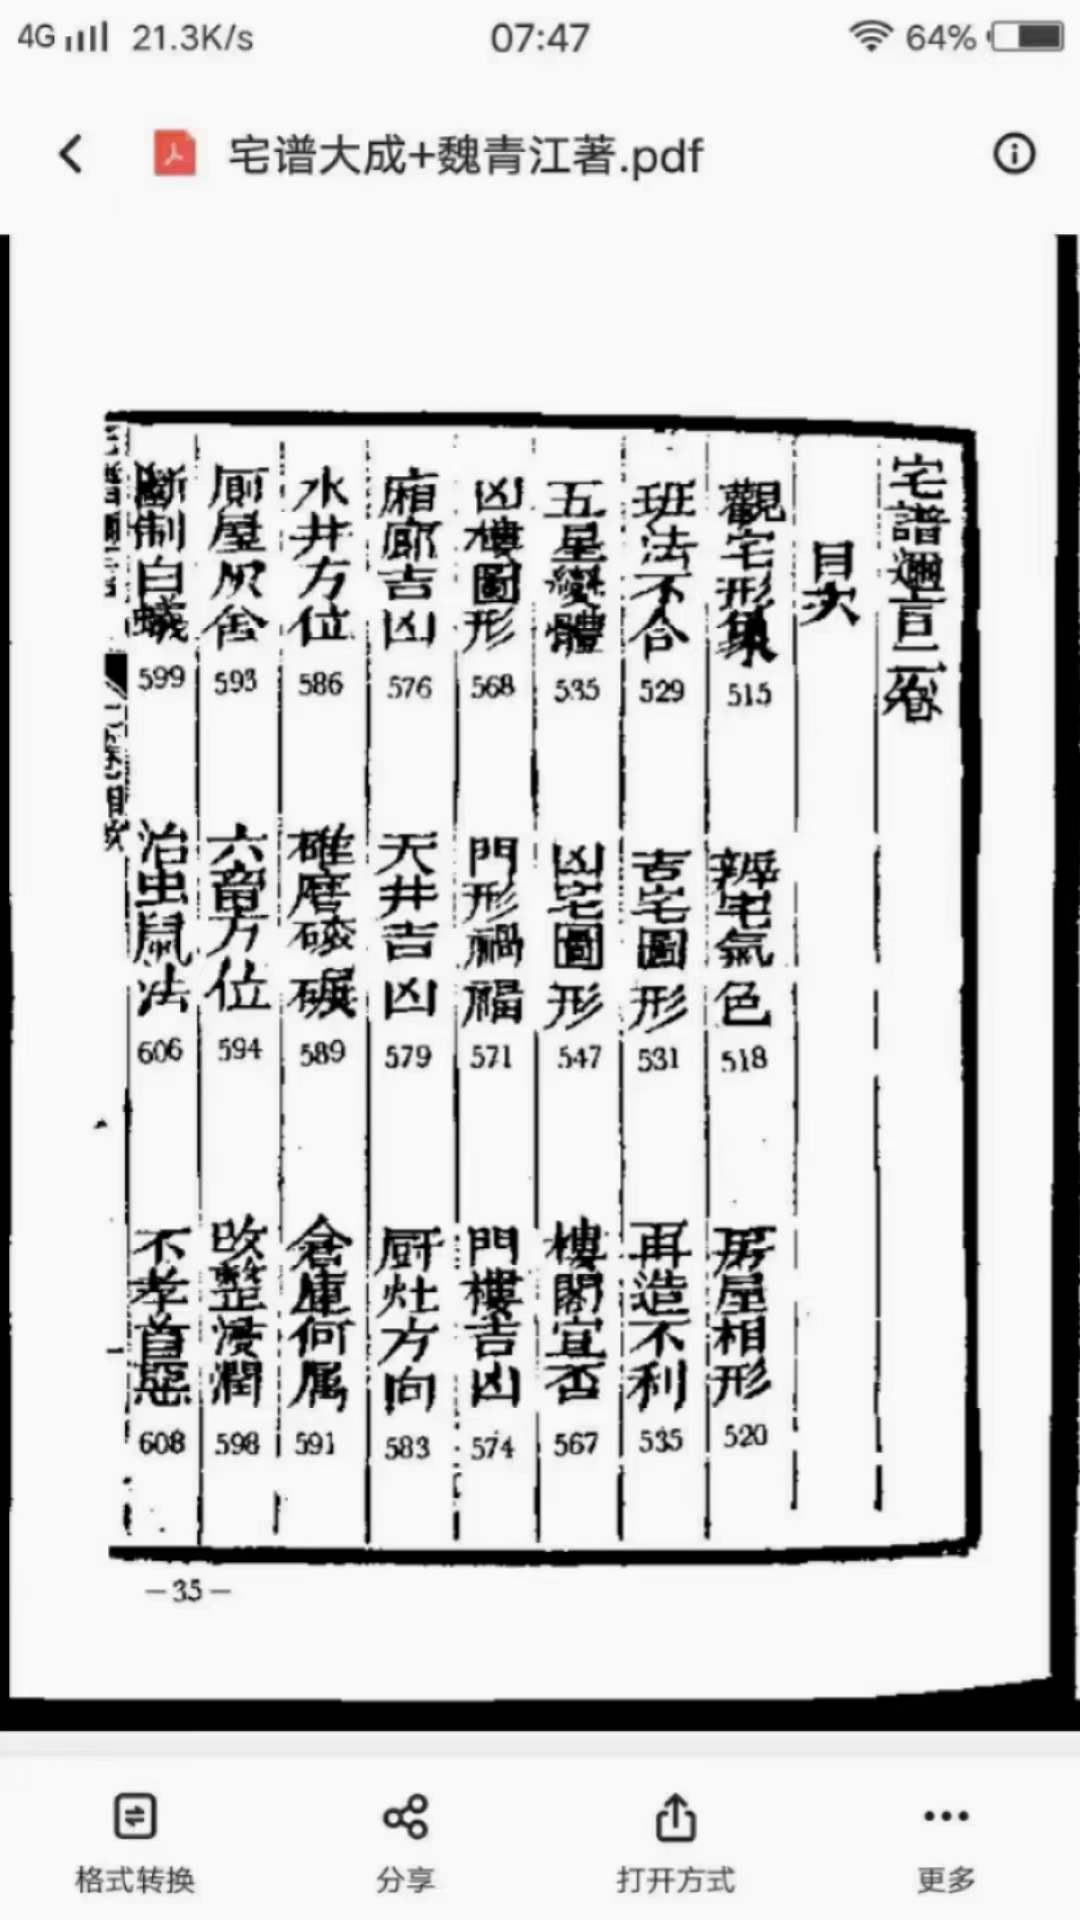 4G 21.3K/s 07:47 64%
宅谱大成+魏青江著.pdf
宅譜邇言二卷
目次
觀宅形象 515
辨宅氣色 518
房屋相形 520
班法不合 529
吉宅圖形 531
再造不利 535
五星變體 535
凶宅圖形 547
樓閣宜否 567
凶樓圖形 568
門形禍福 571
門樓吉凶 574
廂廊吉凶 576
天井吉凶 579
厨灶方向 583
水井方位 586
碓磨碾 589
倉庫何屬 591
厠屋灰舍 593
六畜方位 594
改整浸潤 598
斷制白蟻 599
治虫鼠法 606
不孝首惡 608
—35—
格式转换
分享
打开方式
更多